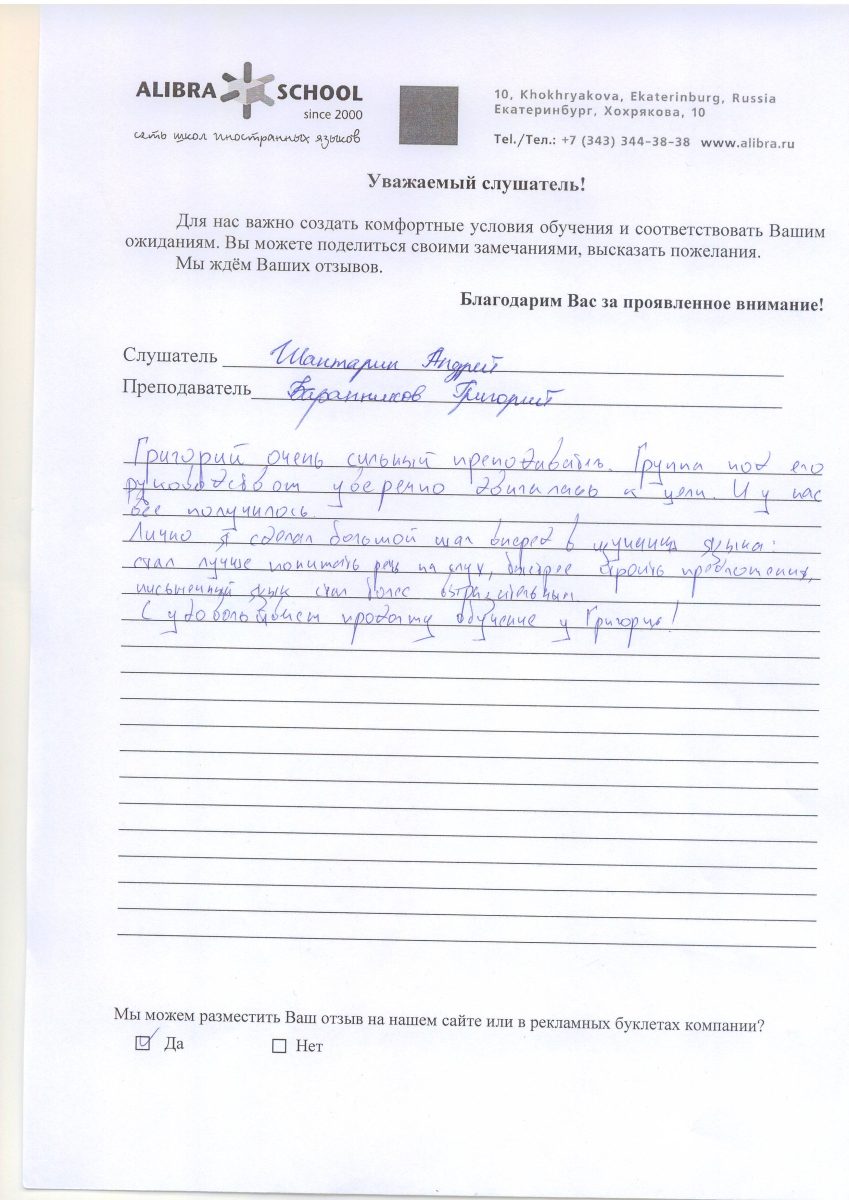 ALIBRA SCHOOL
since 2000
сеть школ иностранных языков
10, Khokhryakova, Ekaterinburg, Russia
Екатеринбург, Хохрякова, 10
Tel./Тел.: +7 (343) 344-38-38 www.alibra.ru
Уважаемый слушатель!
Для нас важно создать комфортные условия обучения и соответствовать Вашим
ожиданиям. Вы можете поделиться своими замечаниями, высказать пожелания.
Мы ждём Ваших отзывов.
Благодарим Вас за проявленное внимание!
Слушатель Шантарин Андрей
Преподаватель Баранников Григорий
Григорий очень сильный преподаватель. Группа под его
руководством уверенно двигалась к цели. И у нас
всё получилось.
Лично я сделал большой шаг вперед в изучении языка:
стал лучше понимать речь на слух, быстрее строить предложения,
письменный язык стал более выразительным.
С удовольствием продолжу обучение у Григория!
Мы можем разместить Ваш отзыв на нашем сайте или в рекламных буклетах компании?
Да Нет